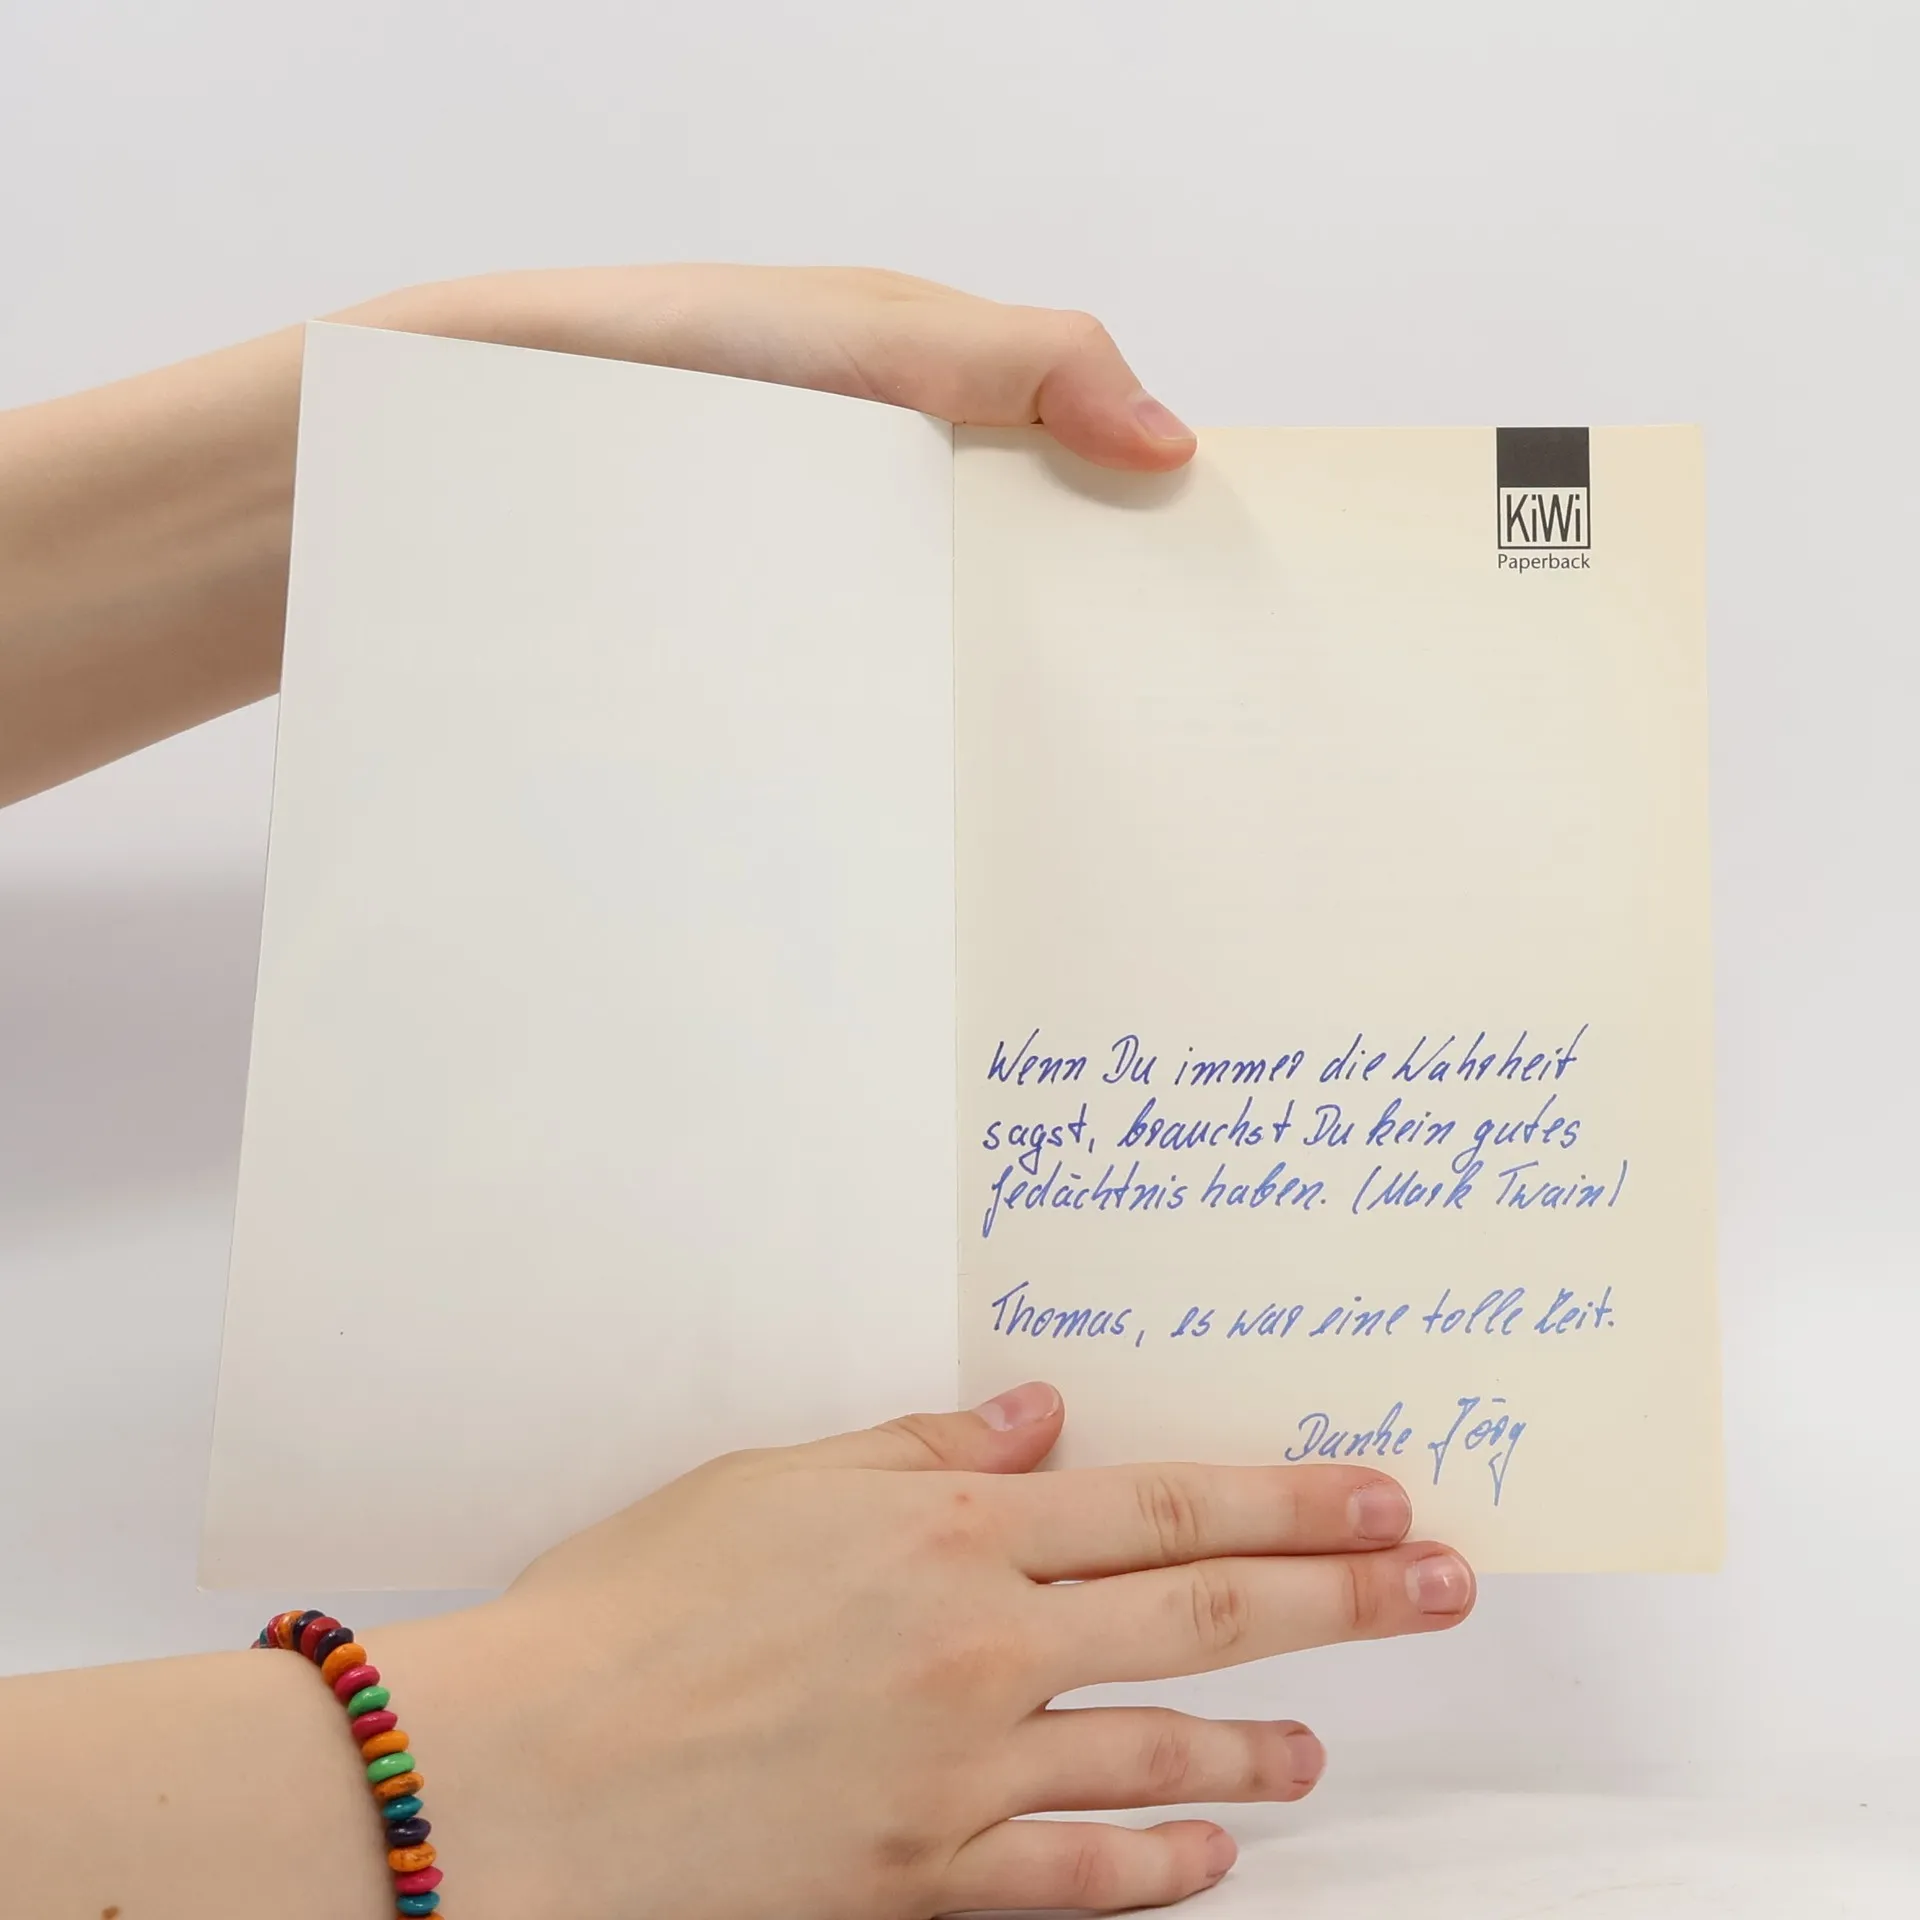 KiWi
Paperback
Wenn Du immer die Wahrheit
sagst, brauchst Du kein gutes
Gedächtnis haben. (Mark Twain)
Thomas, es war eine tolle Zeit.
Danke Jörg